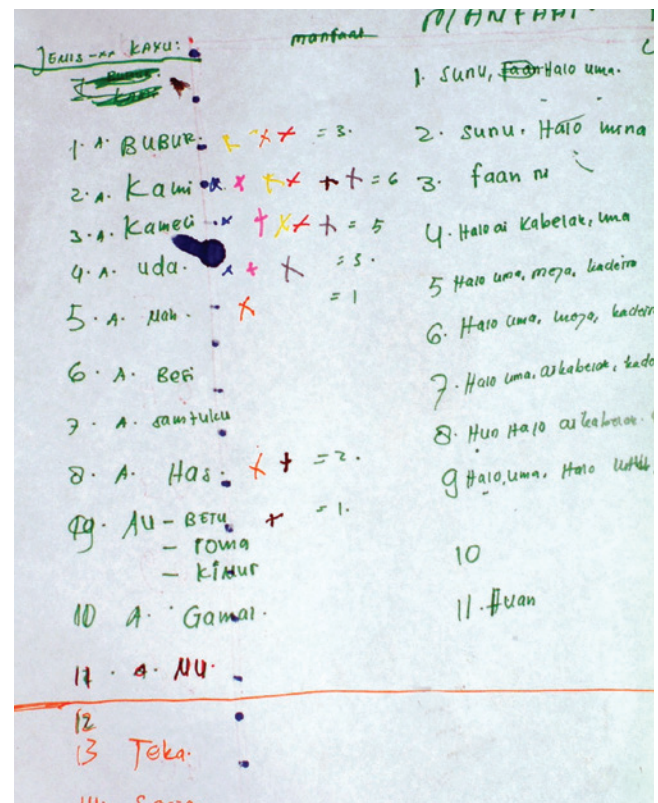 JENIS-xx KAYU:
manfaat
MANFAAT.
1. A. BUBUR. = 3.
2. A. Kami = 6
3. A. Kameli = 5
4. A. uda. = 3.
5. A. Nah. = 1
6. A. Besi
7. A. samtuku
8. A. Has. = 2.
9. AU - BETU = 1.
- roma
- KiNur
10 A. Gamal.
11. A. NU.
12
13 Teka.
1. Sunu, Halo uma.
2. Sunu. Halo
3. faan
4. Halo ai Kabelak, uma
5 Halo uma, meja, kadeira
6. Halo uma, meja, kadeira
7. Halo uma, aikabelak,
8. Hun Halo aikabelak.
9 Halo, uma. Halo
10
11. Huan